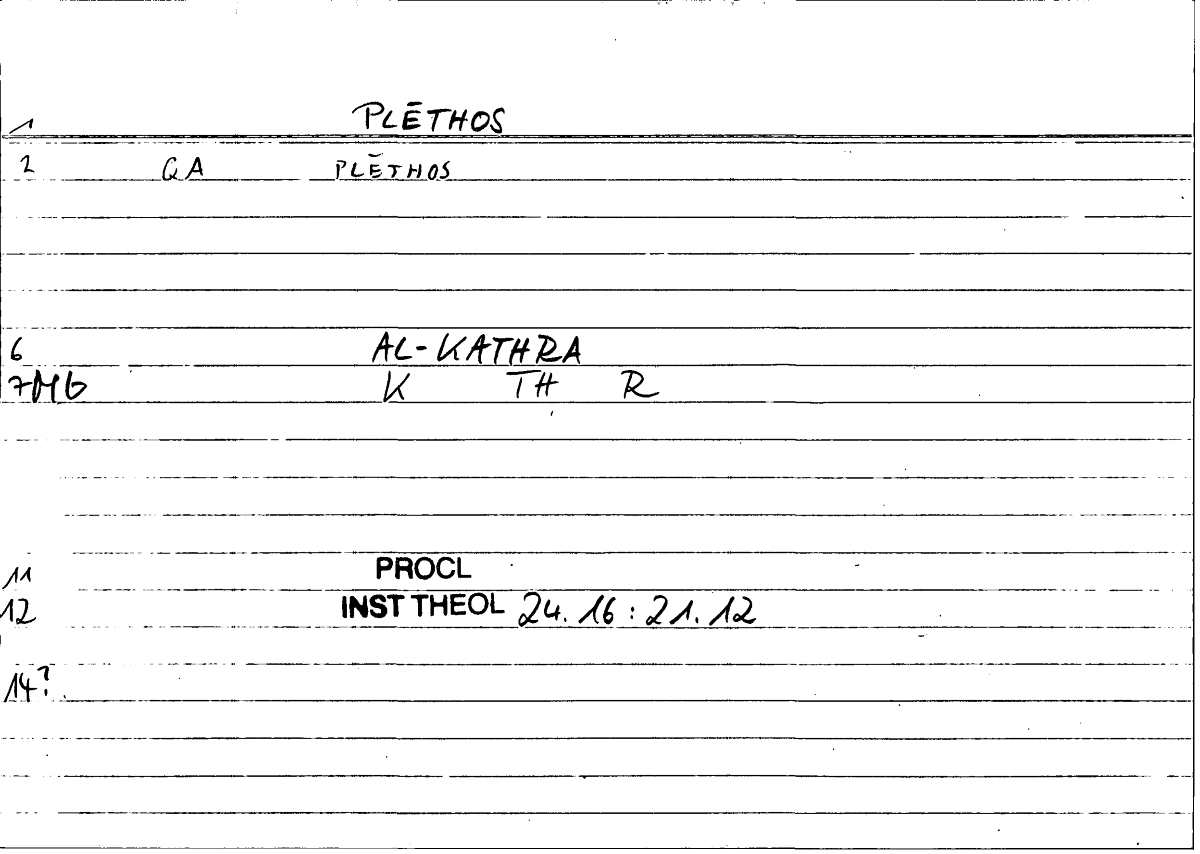 1 PLĒTHOS
2 QA PLĒTHOS
6 AL-KATHRA
7MG K TH R
11 PROCL
12 INST THEOL 24.16 : 21.12
14?